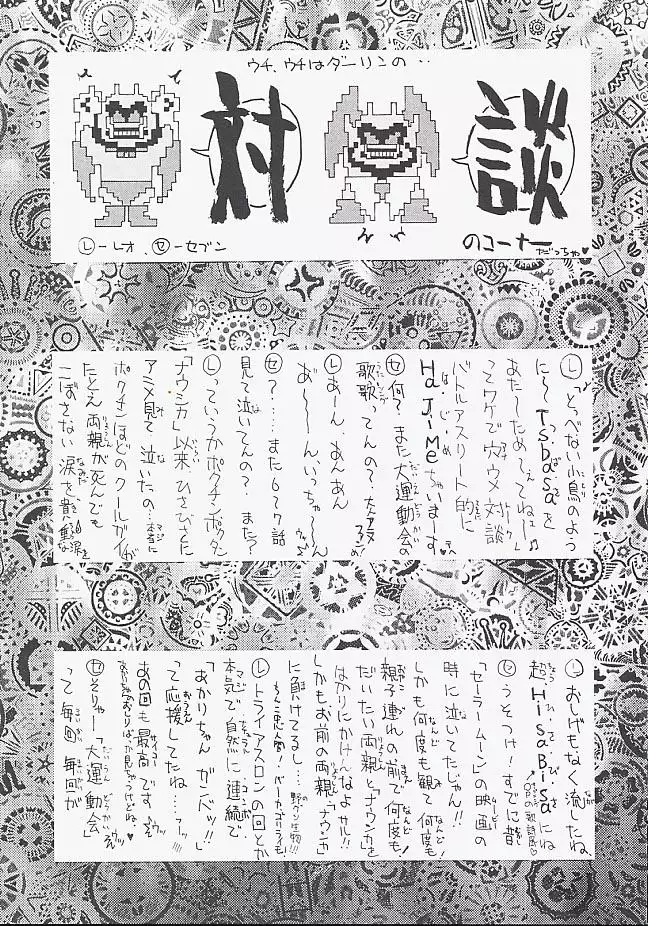 ウチ、ウチはダーリンの‥
対談
のコーナーだっちゃ♥
Ⓛーレオ、㋝ーセブン
Ⓛ「とべない小鳥のよう
に〜Tsubasaを
あた〜ためてぇねぇー」♪
ってワケでウワサの対談
バトルアスリート的に
HaJiMeちゃいまーす。
㋝何?また大運動会の
歌歌ってんの?
Ⓛあーん、あんあん
あ〜〜んいっちゃ〜〜ん
㋝?……また6て7話
見て泣いてんの?また?
Ⓛっていうかボクチンボクタン
「ナウシカ」以来ひさびさに
アニメ見て泣いたの。本当に
ボクチンほどのクールガイが
たとえ両親が死んでも
こぼさない涙を
Ⓛおしげもなく流したね、
超HiSaBiSaにね
㋝うそつけ!すでに昔
「セーラームーン」の映画の
時に泣いてたじゃん!!
しかも何度も観て何度も
親子連れの前で何度も!
だいたい両親と「ナウシカ」を
はかりにかけんなよサル!!
しかもお前の両親「ナウシカ」
に負けてるし…
Ⓛトライアスロンの回とか
本気で自然に連続で
「あかりちゃんガンバッ!!」
って応援してたね…
あの回も最高です。
㋝そりゃー「大運動会」
って毎回毎回が